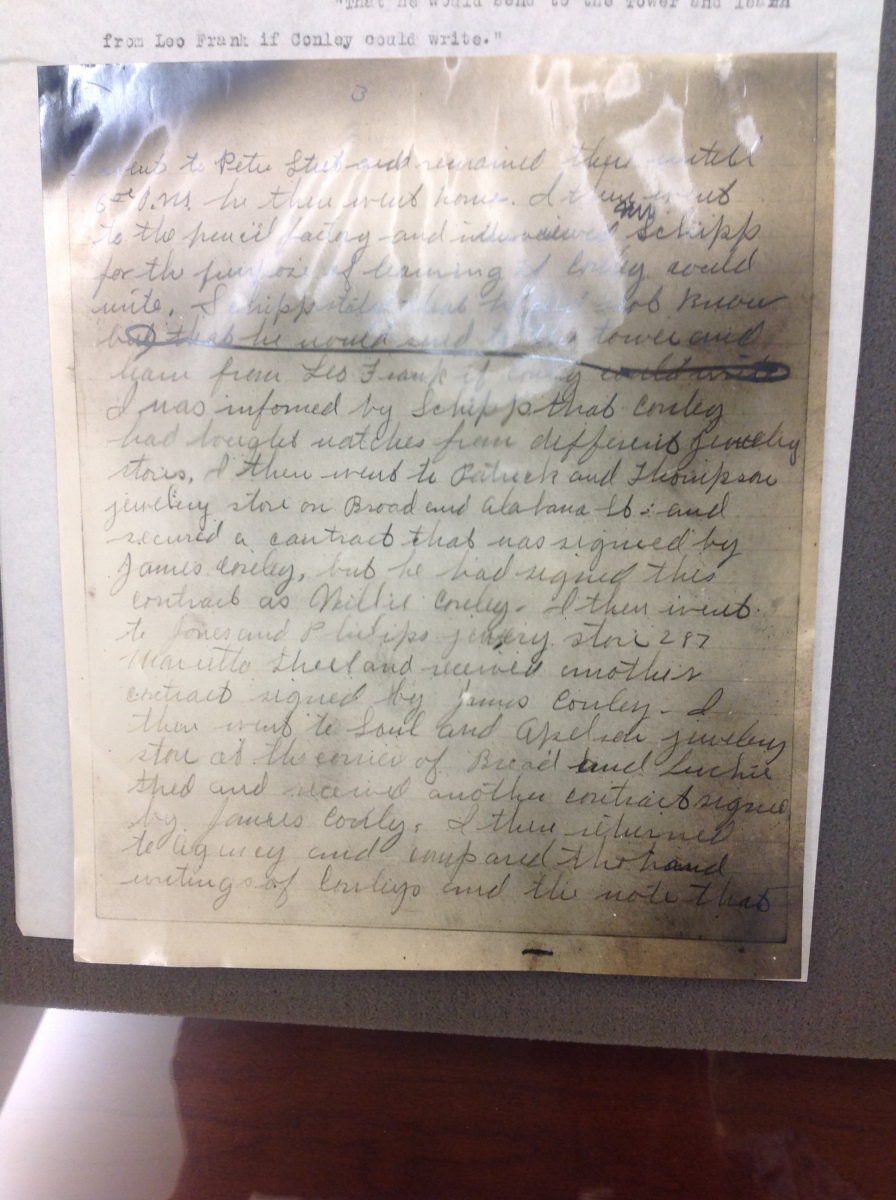 "That he would send to the Tower and learn
from Leo Frank if Conley could write."
3
went to Peter Street and remained there untill
6 P.M. he then went home. I then went
to the pencil factory and interviewed Mr Schipp
for the purpose of learning if Conley could
write. Schipp stated that he did not know
but that he would send to the tower and
learn from Leo Frank if Conley could write
I was infomed by Schipp that Conley
had bought watches from different jewelry
stores. I then went to Patrick and Thompson
jewelry store on Broad and Alabama St. and
secured a contract that was signed by
James Conley, but he had signed this
contract as Willie Conley. I then went
to Jones and Philips jewery store 287
Marietta Street and received another
contract signed by James Conley. I
then went to Saul and Apelson jewelry
store at the corner of Broad and Luckie
and received another contract signed
by James Conly. I then returned
to agency and compared the hand
writings of Conleys and the note that